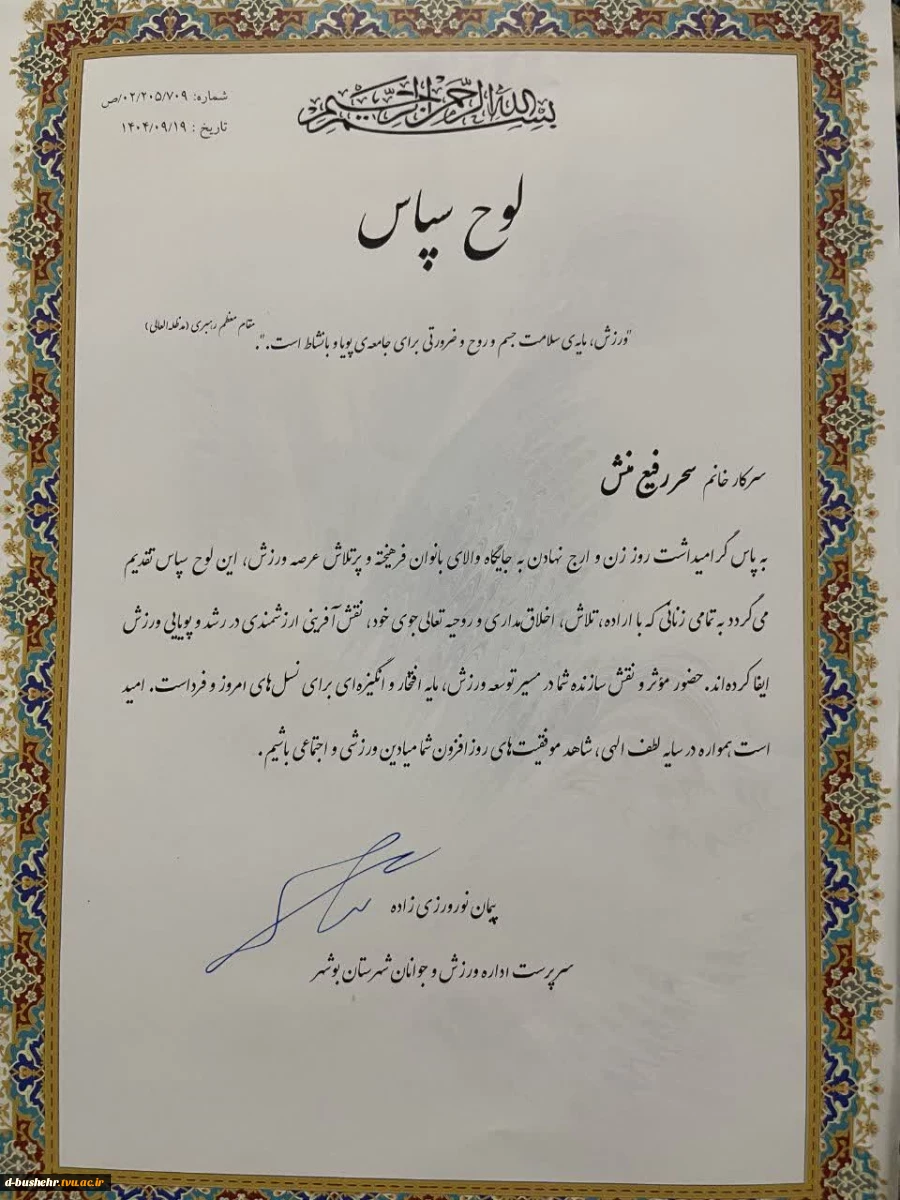 بسم الله الرحمن الرحیم
شماره: ۰۲/۲۰۵/۷۰۹/ص
تاریخ : ۱۴۰۴/۰۹/۱۹
لوح سپاس
"ورزش، مایه‌ی سلامت جسم و روح و ضرورتی برای جامعه‌ی پویا و بانشاط است.". مقام معظم رهبری (مدظله العالی)
سرکار خانم سحر رفیع منش
به پاس گرامیداشت روز زن و ارج نهادن به جایگاه والای بانوان فرهیخته و پرتلاش عرصه ورزش، این لوح سپاس تقدیم
می‌گردد به تمامی زنانی که با اراده، تلاش، اخلاق‌مداری و روحیه تعالی‌جوی خود، نقش‌آفرینی ارزشمندی در رشد و پویایی ورزش
ایفا کرده‌اند. حضور مؤثر و نقش سازنده شما در مسیر توسعه ورزش، مایه افتخار و انگیزه‌ای برای نسل‌های امروز و فرداست. امید
است همواره در سایه لطف الهی، شاهد موفقیت‌های روزافزون شما میادین ورزشی و اجتماعی باشیم .
پیمان نورورزی زاده
سرپرست اداره ورزش و جوانان شهرستان بوشهر
d-bushehr.tvu.ac.ir